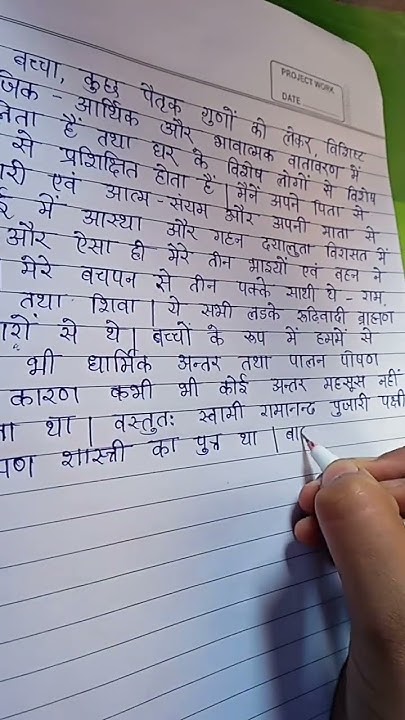 PROJECT WORK
DATE
बच्चा, कुछ पैतृक गुणों को लेकर, विशिष्ट
जिक - आर्थिक और भावात्मक वातावरण में
लेता है तथा घर के विशेष लोगों से विशेष
से प्रशिक्षित होता है। मैनें अपने पिता से
री एवं आत्म-संयम और अपनी माता से
ई में आस्था और गहन दयालुता विरासत में
और ऐसा ही मेरे तीन भाइयों एवं वहन ने
मेरे बचपन से तीन पक्के साथी थे - राम,
तथा शिवा। ये सभी लडके रूढिवादी ब्राह्मण
रों से थे। बच्चों के रूप में हममें से
भी धार्मिक अन्तर तथा पालन पोषण
कारण कभी भी कोई अन्तर महसूस नहीं
था। वस्तुतः स्वामी रामानन्द पुजारी पक्षी
मण शास्त्री का पुत्र था। बा